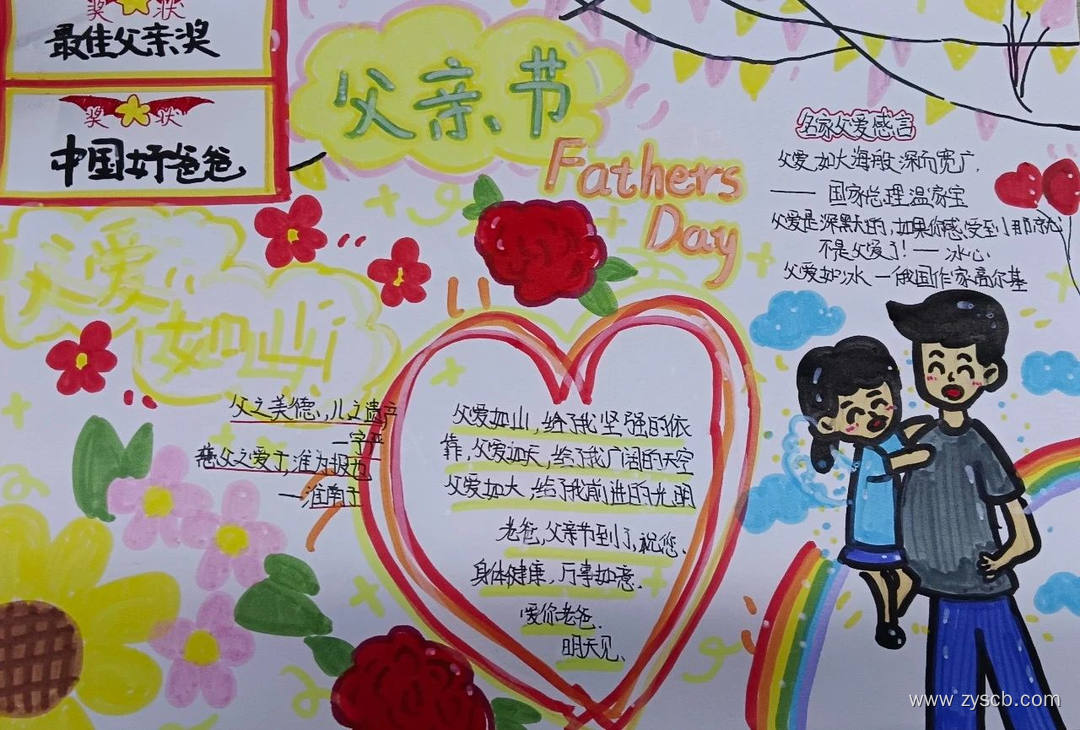 奖状
最佳父亲奖
奖状
中国好爸爸
父亲节
Fathers
Day
名家父爱感言
父爱如大海般深而宽广.
—— 国家总理温家宝
父爱是深默的,如果你感受到
不是父爱了!— 冰心.
父爱如冰 — 俄国作家高尔基
父爱
如山
父之美德,儿之遗产
慈父之爱子,准为报也
父爱如山,给了我坚强的依
靠,父爱如天,给了我广阔的天空
父爱如大,给了我前进的光明
老爸,父亲节到了,祝您.
身体健康,万事如意.
爱你老爸.
明天见、
www.zyscb.com